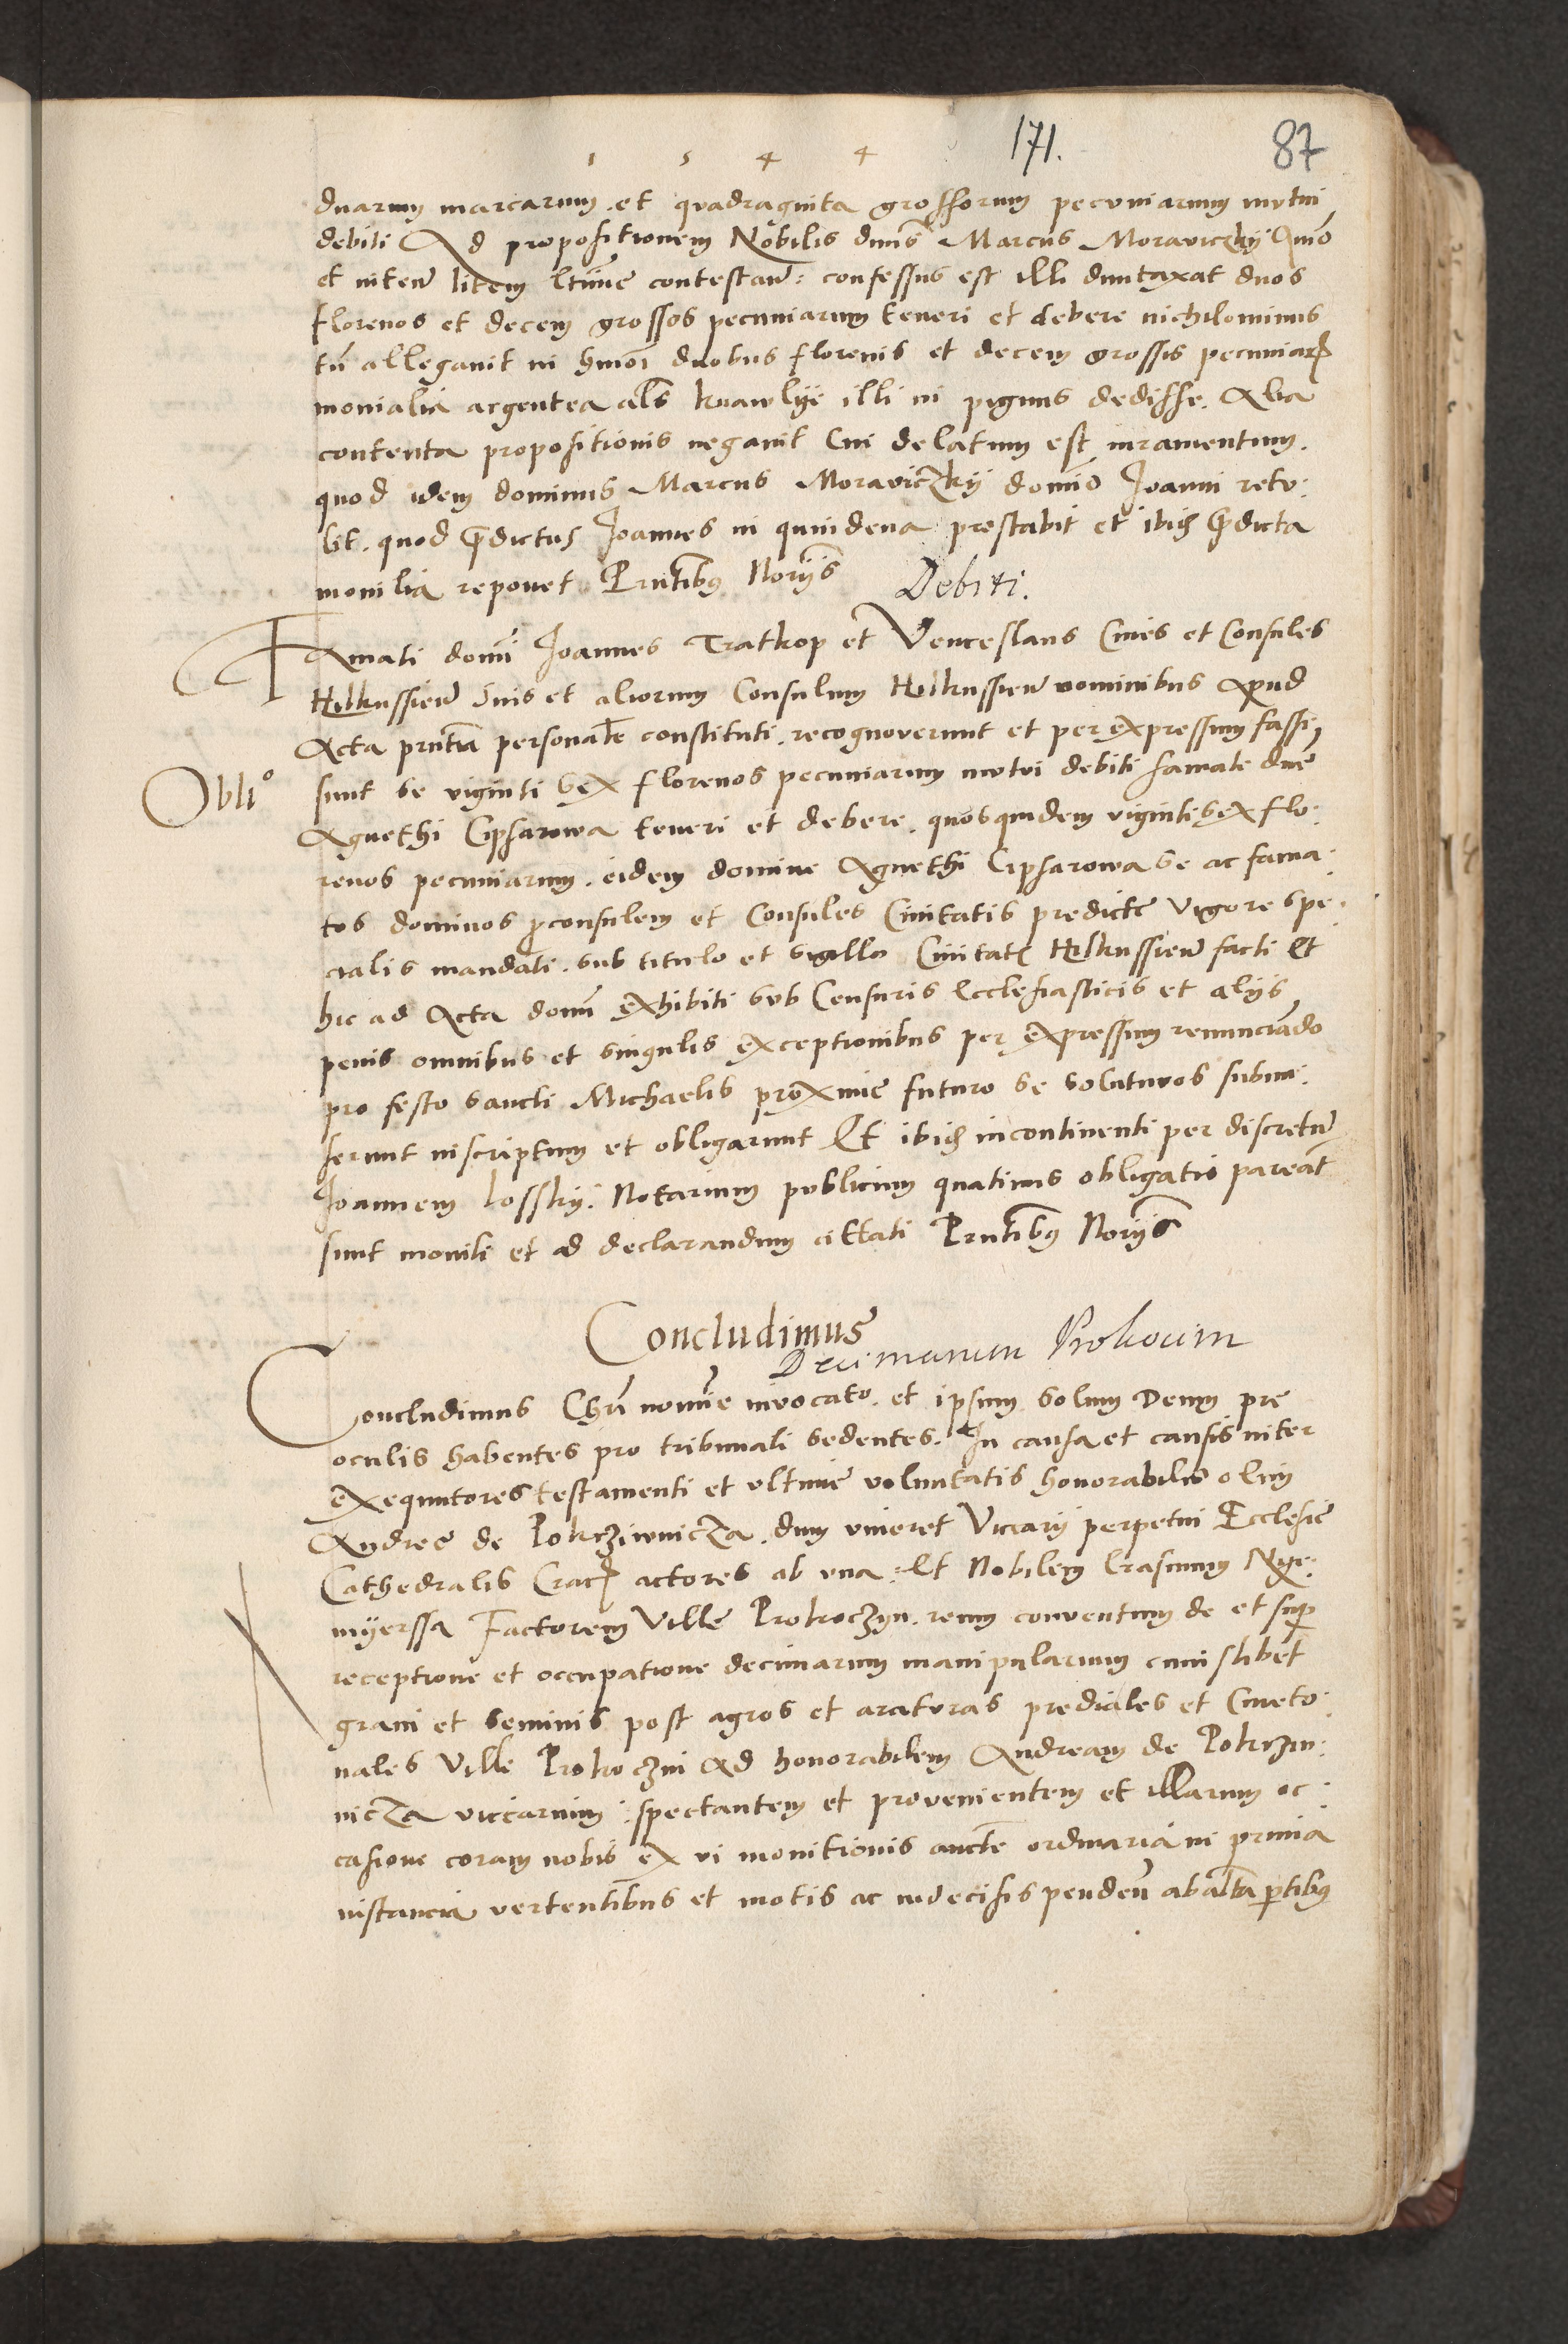 1 5 4 4 171. 87
duarum marcarum et quadraginta grossorum pecuniarum mutui
debiti Ad propositionem Nobilis dnus Marcus Moraviczkij Animo
et inten litem ltime contestan: confessus est illi duntaxat duos
florenos et decem grossos pecuniarum teneri et debere nichilominus
tn allegavit in hmoi duobus florenis et decem grossis pecuniar
monialia argentea als knawlye illi in pignus dedisse. Alia
contenta propositionis negavit Cui delatum est iuramentum.
quod idem dominus Marcus Moraviczkij domino Joanni retu:
lit. quod predictus Joannes in quindena prestabit et ibidem predicta
monilia reponet Pntibus Noriis Debiti.
Famati domini Joannes Tratkop et Venceslaus Cives et Consules
Hilkussien suis et aliorum Consulum Hilkussien nominibus Apud
Acta pntia personalr constituti. recognoverunt et per expressum fassi
Oblio sunt se viginti sex florenos pecuniarum mutui debiti famate dne
Agnethi Cipsarowa teneri et debere. quosquidem viginti sex flo:
renos pecuniarum. eidem domine Agnethi Cipsarowa se ac fama:
tos dominos proconsulem et Consules Civitatis predicte vigore spe:
cialis mandati. sub titulo et sigillo Civitatis Hilkussien facti Et
hic ad Acta domi exhibiti sub Censuris Ecclesiasticis et alijs
penis omnibus et singulis exceptionibus per expressum renunciando
pro festo sancti Michaelis proxime futuro se soluturos submi:
serunt inscriptum et obligarunt Et ibidem incontinenti per discretum
Joannem Losski. Notarium publicum quatinus obligatis pareant
sunt moniti et ad declarandum cittati Pntibus Noriis
Concludimus
Decimarum Prokocim
Concludimus Chri nomine invocato. et ipsum solum Deum pre
oculis habentes pro tribunali sedentes. In causa et causis inter
exequutores testamenti et ultime voluntatis honorabilis olim
Andree de Pokrziwnicza. dum viveret Vicarij perpetui Ecclesie
Cathedralis Crac actores ab una. Et Nobilem Erasmum Nye:
myerssa Factorem Ville Prokoczyn. reum conventum de et super
receptione et occupatione decimarum manipularium cuiuslibet
grani et seminis post agros et araturas prediales et Cmeto:
nales Ville Prokoczin Ad honorabilem Andream de Pokrziw:
nicza vicarium: spectantem et provenientem et illarum oc:
casione coram nobis ex vi monitionis aucte ordinaria in prima
instancia vertentibus et motis ac indecisis penden ab alta partibus